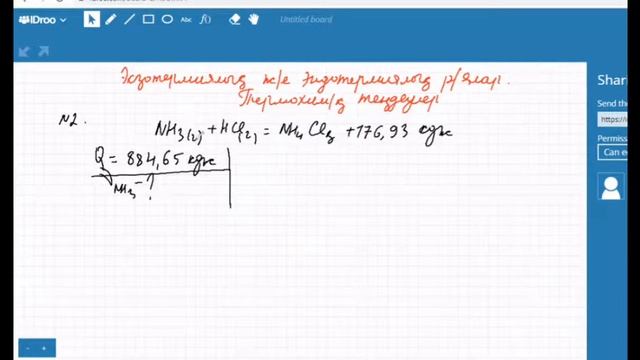 IDroo
Untitled board
Экзотермиялық ж/е эндотермиялық р/циялар.
Термохим/қ теңдеулер
N2.
NH3(г) + HCl(г) = NH4Cl + 176,93 кДж
Q = 884,65 кДж
NH3 - ?
Shari
Send the
https://
Permissio
Can e